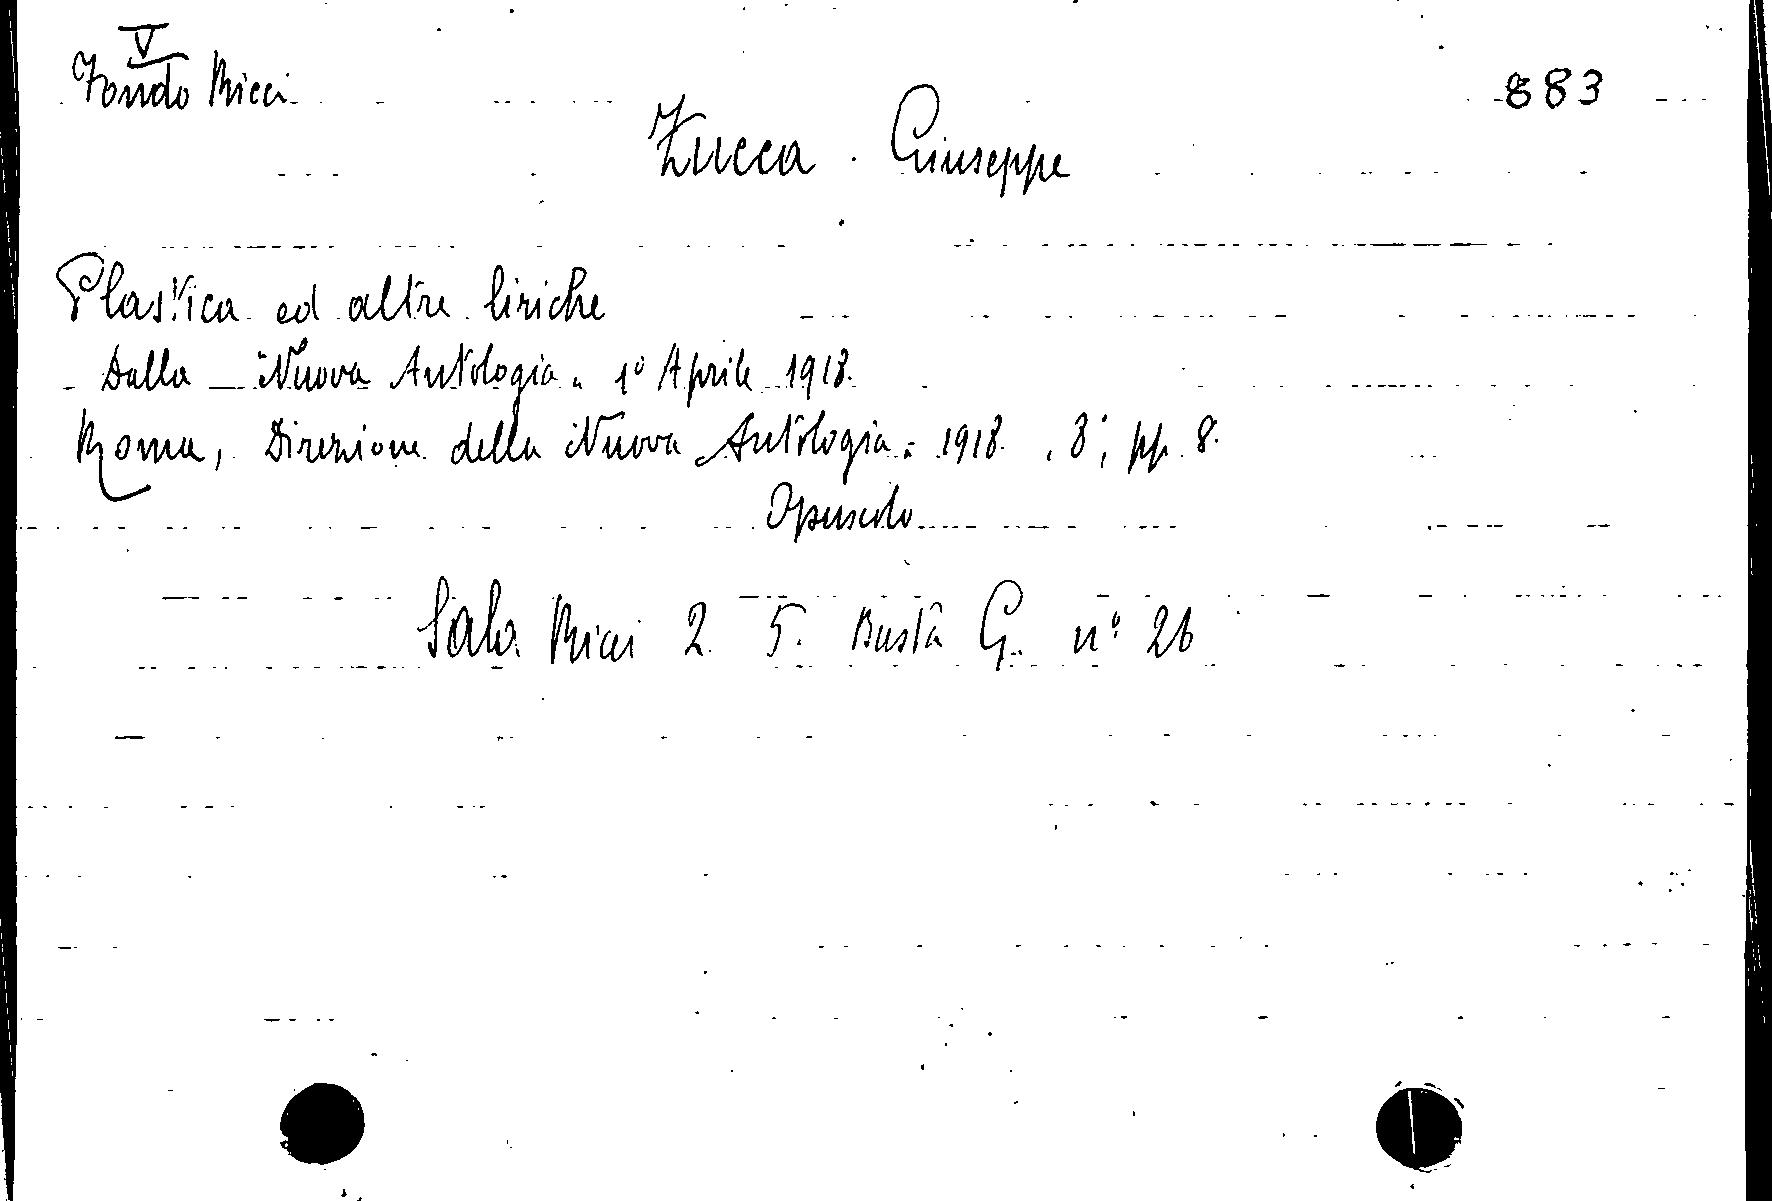 V
Fondo Ricci
883
Zucca Giuseppe
Plastica ed altre liriche
Dalla "Nuova Antologia" 1° Aprile 1918.
Roma, Direzione della "Nuova Antologia" 1918. 8°, pp. 8.
Opuscolo
Sala Ricci 2 5. Busta G. n° 26